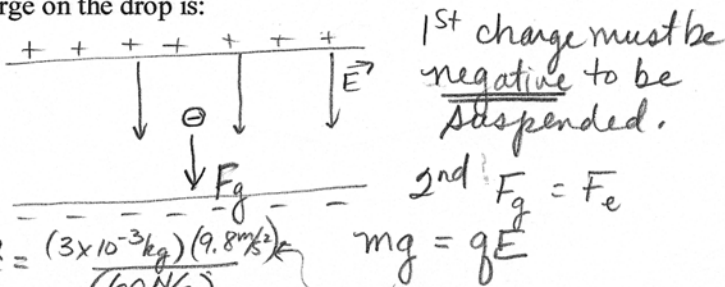 rge on the drop is:
+ + + + + + +
E→
⊖
Fg
− − − − − − −
1st charge must be
negative to be
suspended.
2nd Fg = Fe
mg = qE
= (3x10⁻³kg)(9.8m/s²)